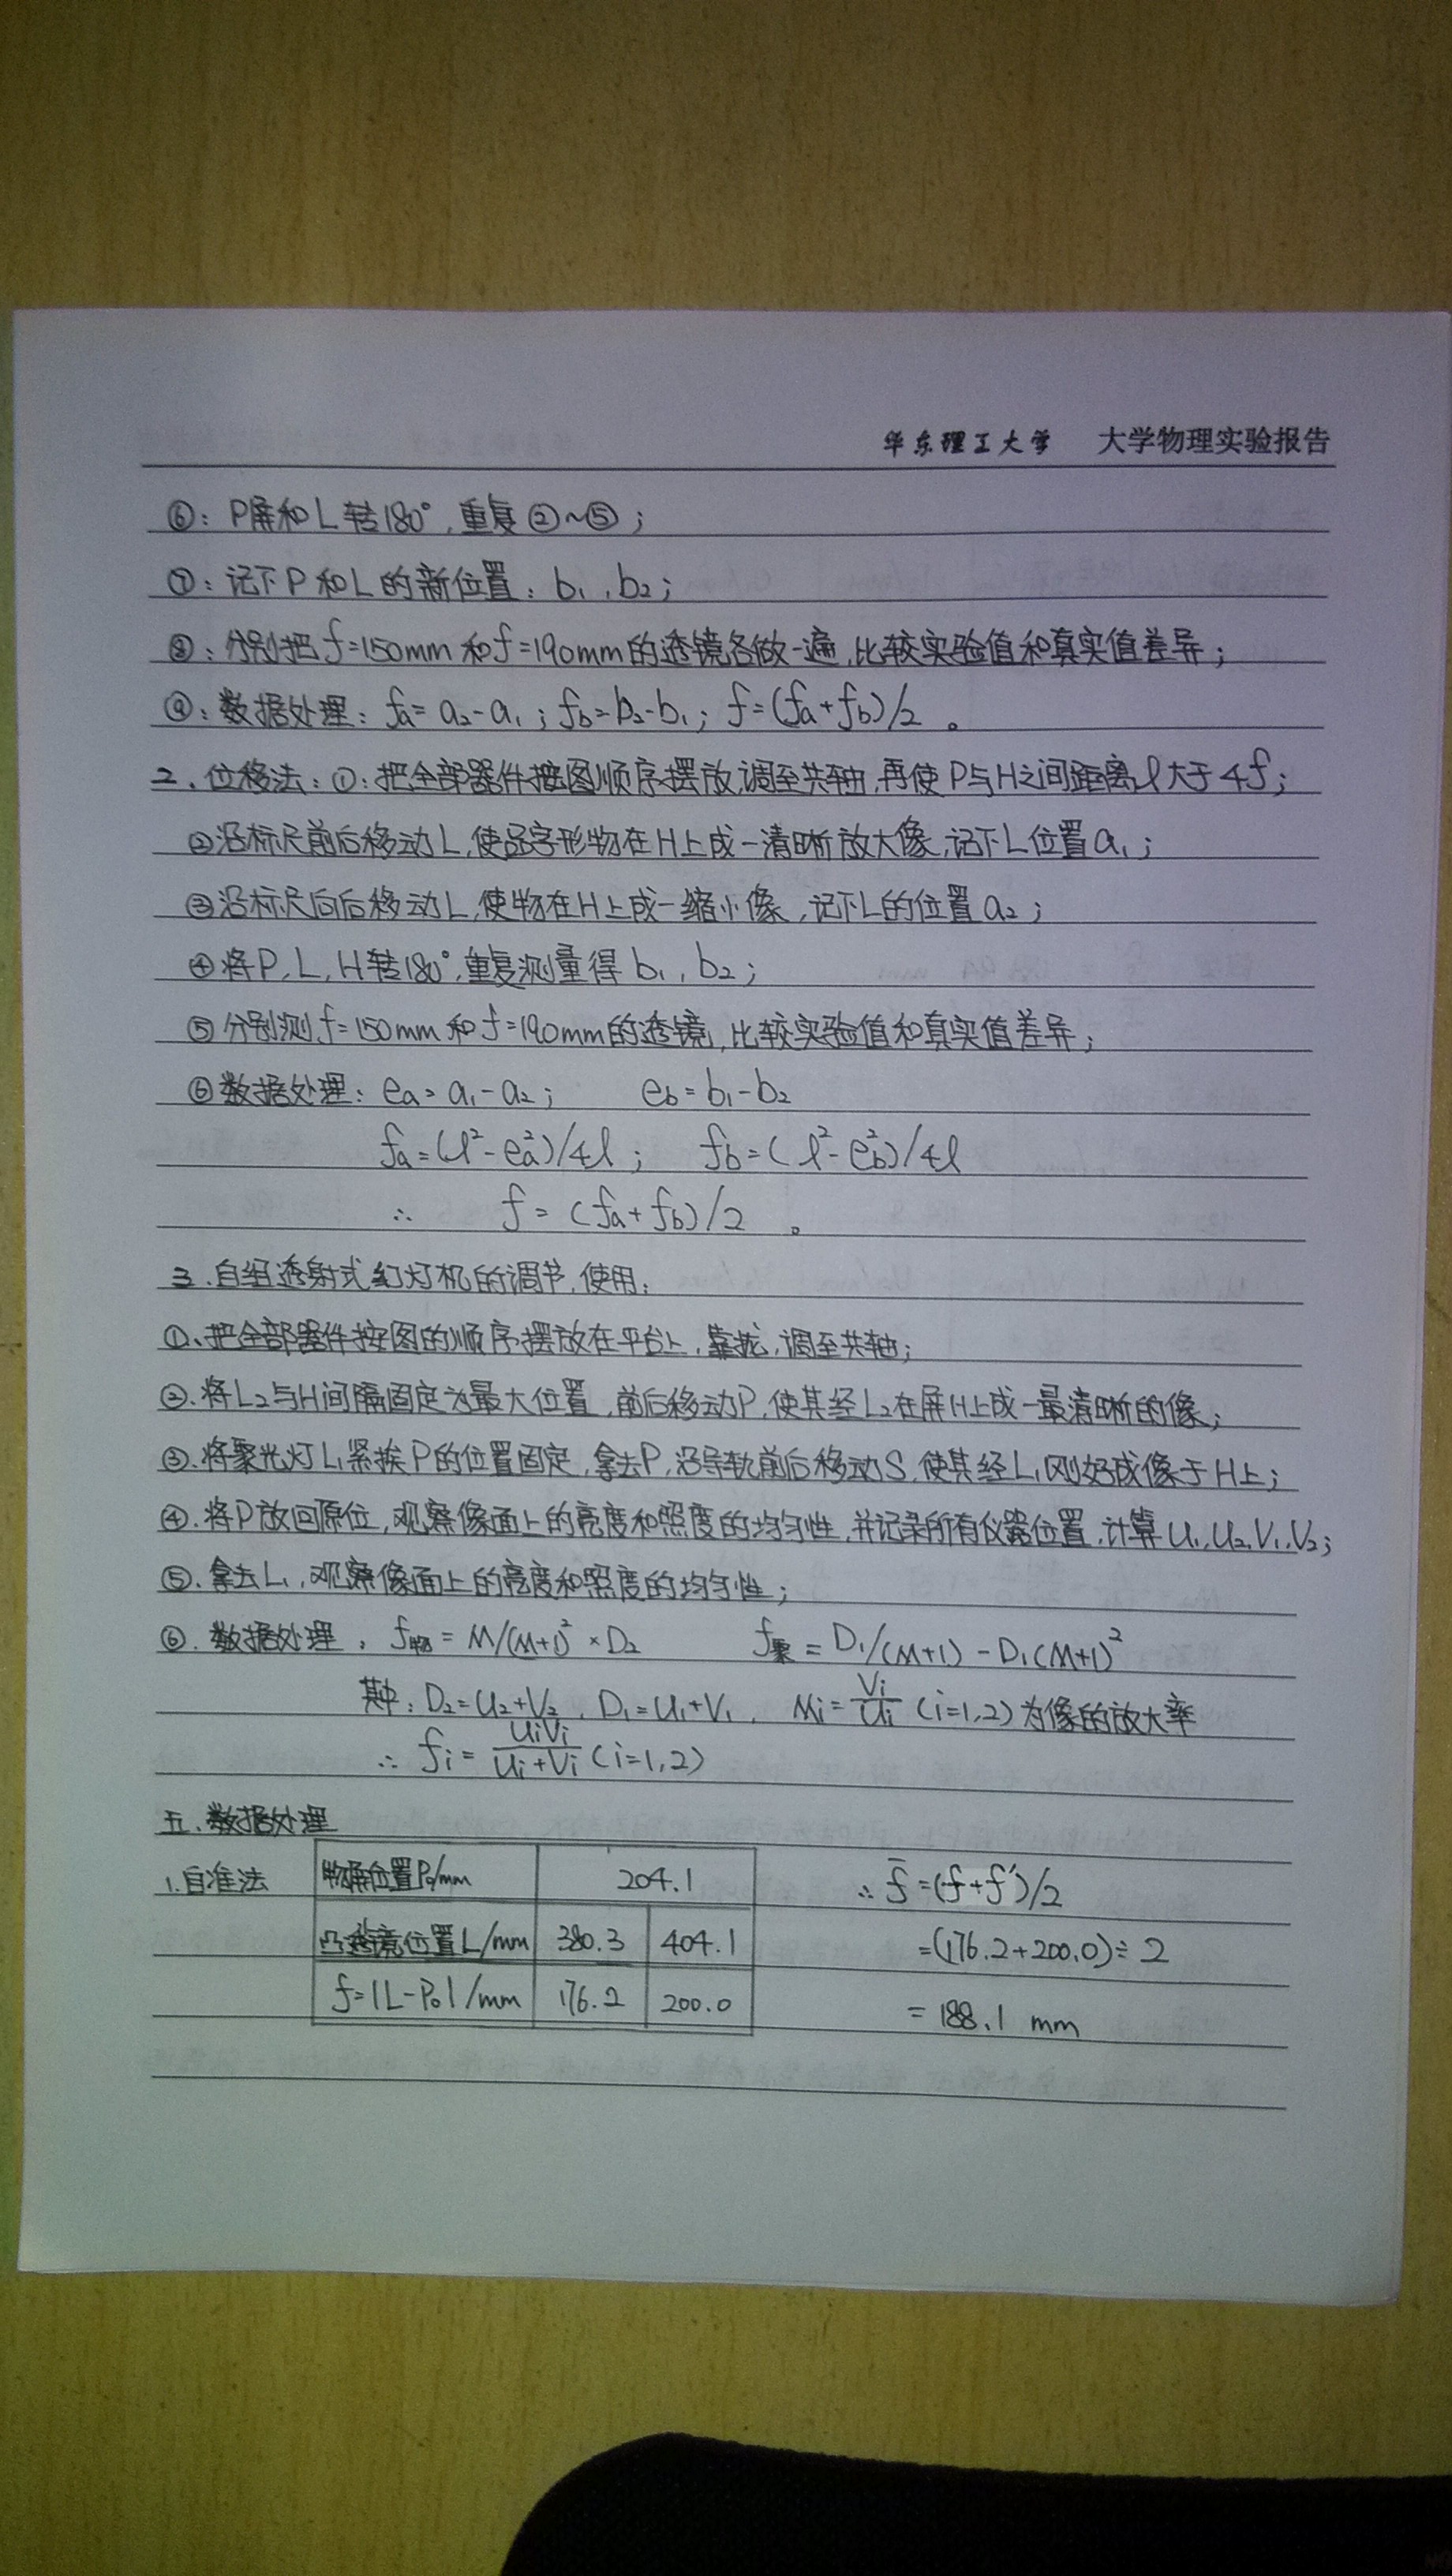 华东理工大学 大学物理实验报告
⑥：P屏和L转180°，重复②~⑤；
⑦：记下P和L的新位置：b₁，b₂；
⑧：分别把f=150mm和f=190mm的透镜各做一遍，比较实验值和真实值差异；
⑨：数据处理：fa=a₂-a₁；fb=b₂-b₁；f=(fa+fb)/2。
二．位移法：①：把全部器件按图顺序摆放，调至共轴，再使P与H之间距离l大于4f；
②沿标尺前后移动L，使品字形物在H上成一清晰放大像，记下L位置a₁；
③沿标尺向后移动L，使物在H上成一缩小像，记下L的位置a₂；
④将P，L，H转180°，重复测量得b₁，b₂；
⑤分别测f=150mm和f=190mm的透镜，比较实验值和真实值差异；
⑥数据处理：ea=a₁-a₂； eb=b₁-b₂
fa=(l²-ea²)/4l； fb=(l²-eb²)/4l
∴ f=(fa+fb)/2。
三．自组透射式幻灯机的调节，使用：
①、把全部器件按图的顺序摆放在平台上，靠拢，调至共轴；
②．将L₂与H间隔固定为最大位置，前后移动P，使其经L₂在屏H上成一最清晰的像；
③．将聚光灯L₁紧挨P的位置固定，拿去P，沿导轨前后移动S，使其经L₁刚好成像于H上；
④．将P放回原位，观察像面上的亮度和照度的均匀性，并记录所有仪器位置，计算U₁，U₂，V₁，V₂；
⑤．拿去L₁，观察像面上的亮度和照度的均匀性；
⑥．数据处理，f物=M/(M+1)²×D₂ f聚=D₁/(M+1)-D₁(M+1)²
其中：D₂=U₂+V₂，D₁=U₁+V₁，Mi=Vi/Ui (i=1,2)为像的放大率
∴ fi=UiVi/Ui+Vi (i=1,2)
五．数据处理
1.自准法
物屏位置P₀/mm 204.1
凸透镜位置L/mm 380.3 404.1
f=|L-P₀|/mm 176.2 200.0
∴ f̄=(f+f′)/2
=(176.2+200.0)÷2
=188.1 mm